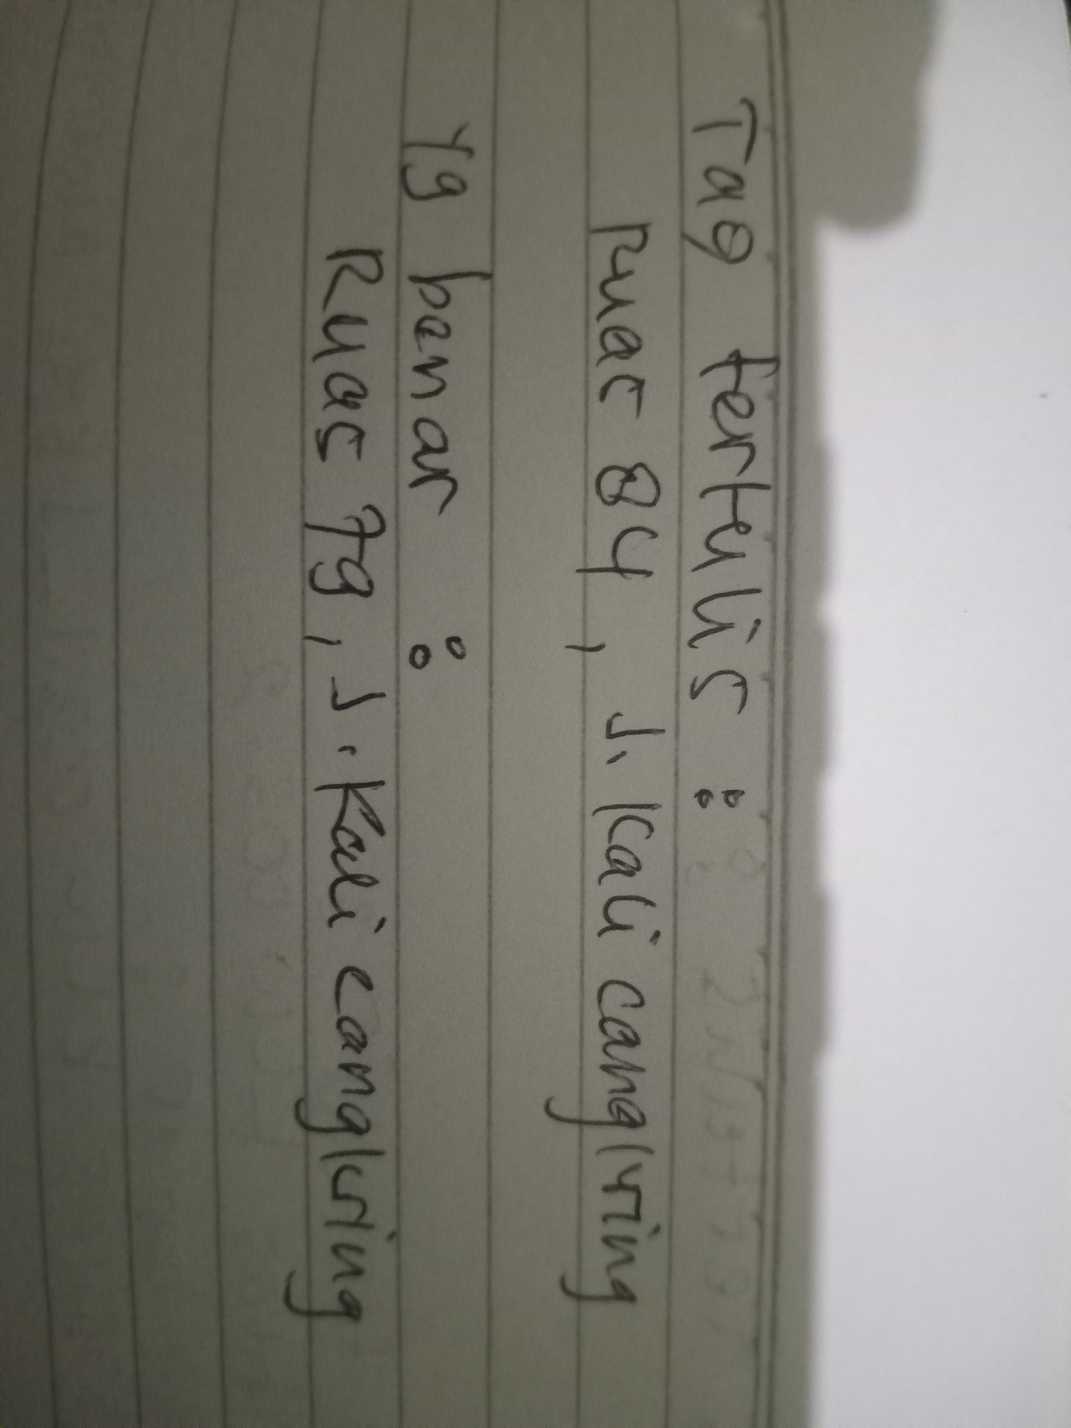 Tag tertulis :
Ruas 84, J. Kali cangkring
Yg benar :
Ruas 79, J. Kali cangkring